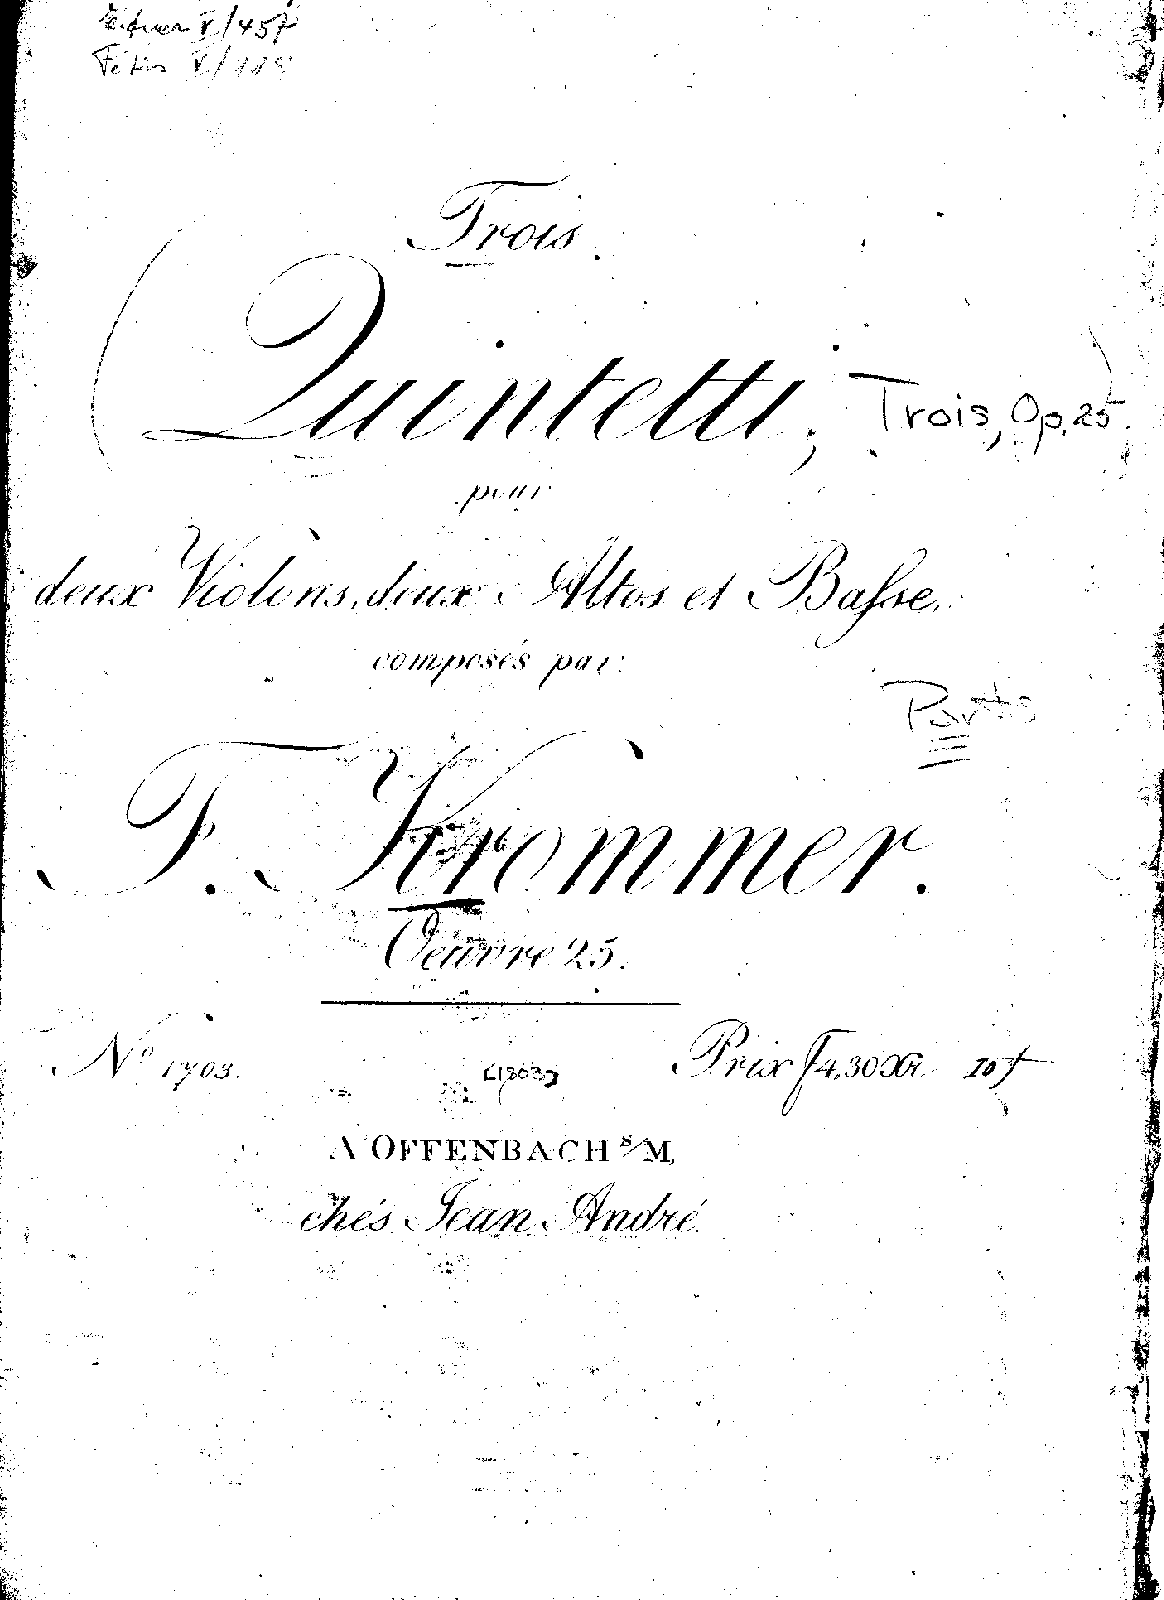 Eitner V/457
Fétis V/
Trois
Quintetti, Trois, Op. 25.
pour
deux Violons, deux Altos et Basse,
composés par
Parts
F. Krommer.
Oeuvre 25.
No 1703. [1803] Prix f 4,30 Xr.
A OFFENBACH s/M,
chés Jean André.